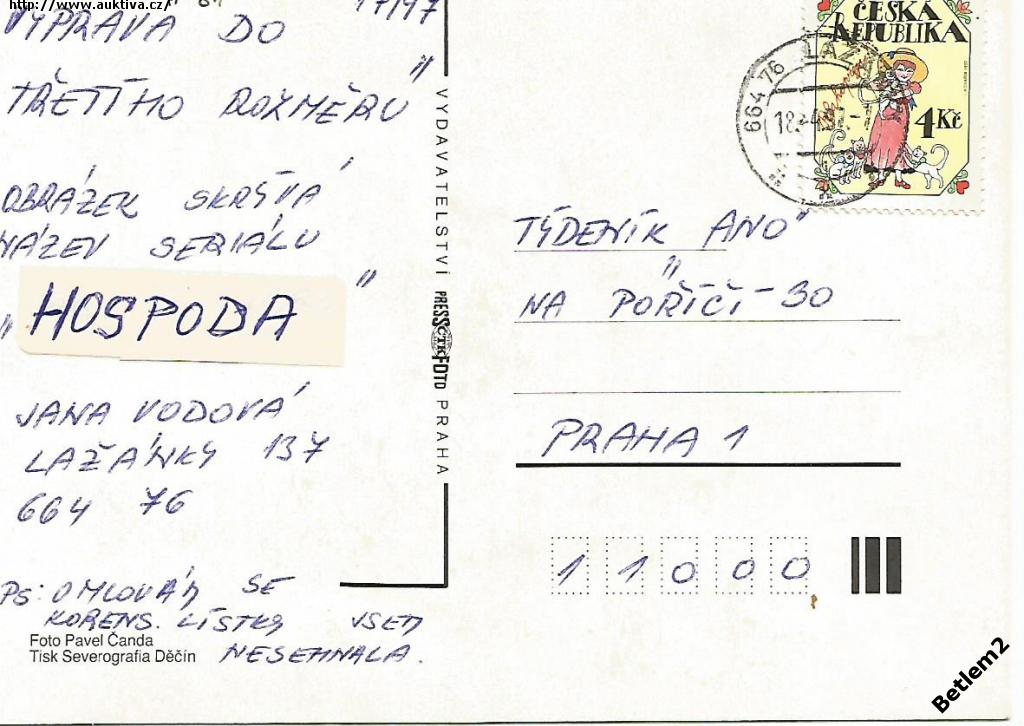 http://www.auktiva.cz/
17/97
VÝPRAVA DO
TŘETÍHO ROZMĚRU"
OBRÁZEK SKRÝVÁ
NÁZEV SERIÁLU
"HOSPODA"
JANA VODOVÁ
LAŽÁNKY 137
664 76
PS: OMLOUVÁM SE
KORENS. LÍSTKY JSEM
NESEHNALA.
Foto Pavel Čanda
Tisk Severografia Děčín
VYDAVATELSTVÍ PRESSFOTO PRAHA
ČTK
ČESKÁ
REPUBLIKA
4 Kč
664 76
TÝDENÍK ANO"
NA POŘÍČÍ - 30
PRAHA 1
11000
Betlem2